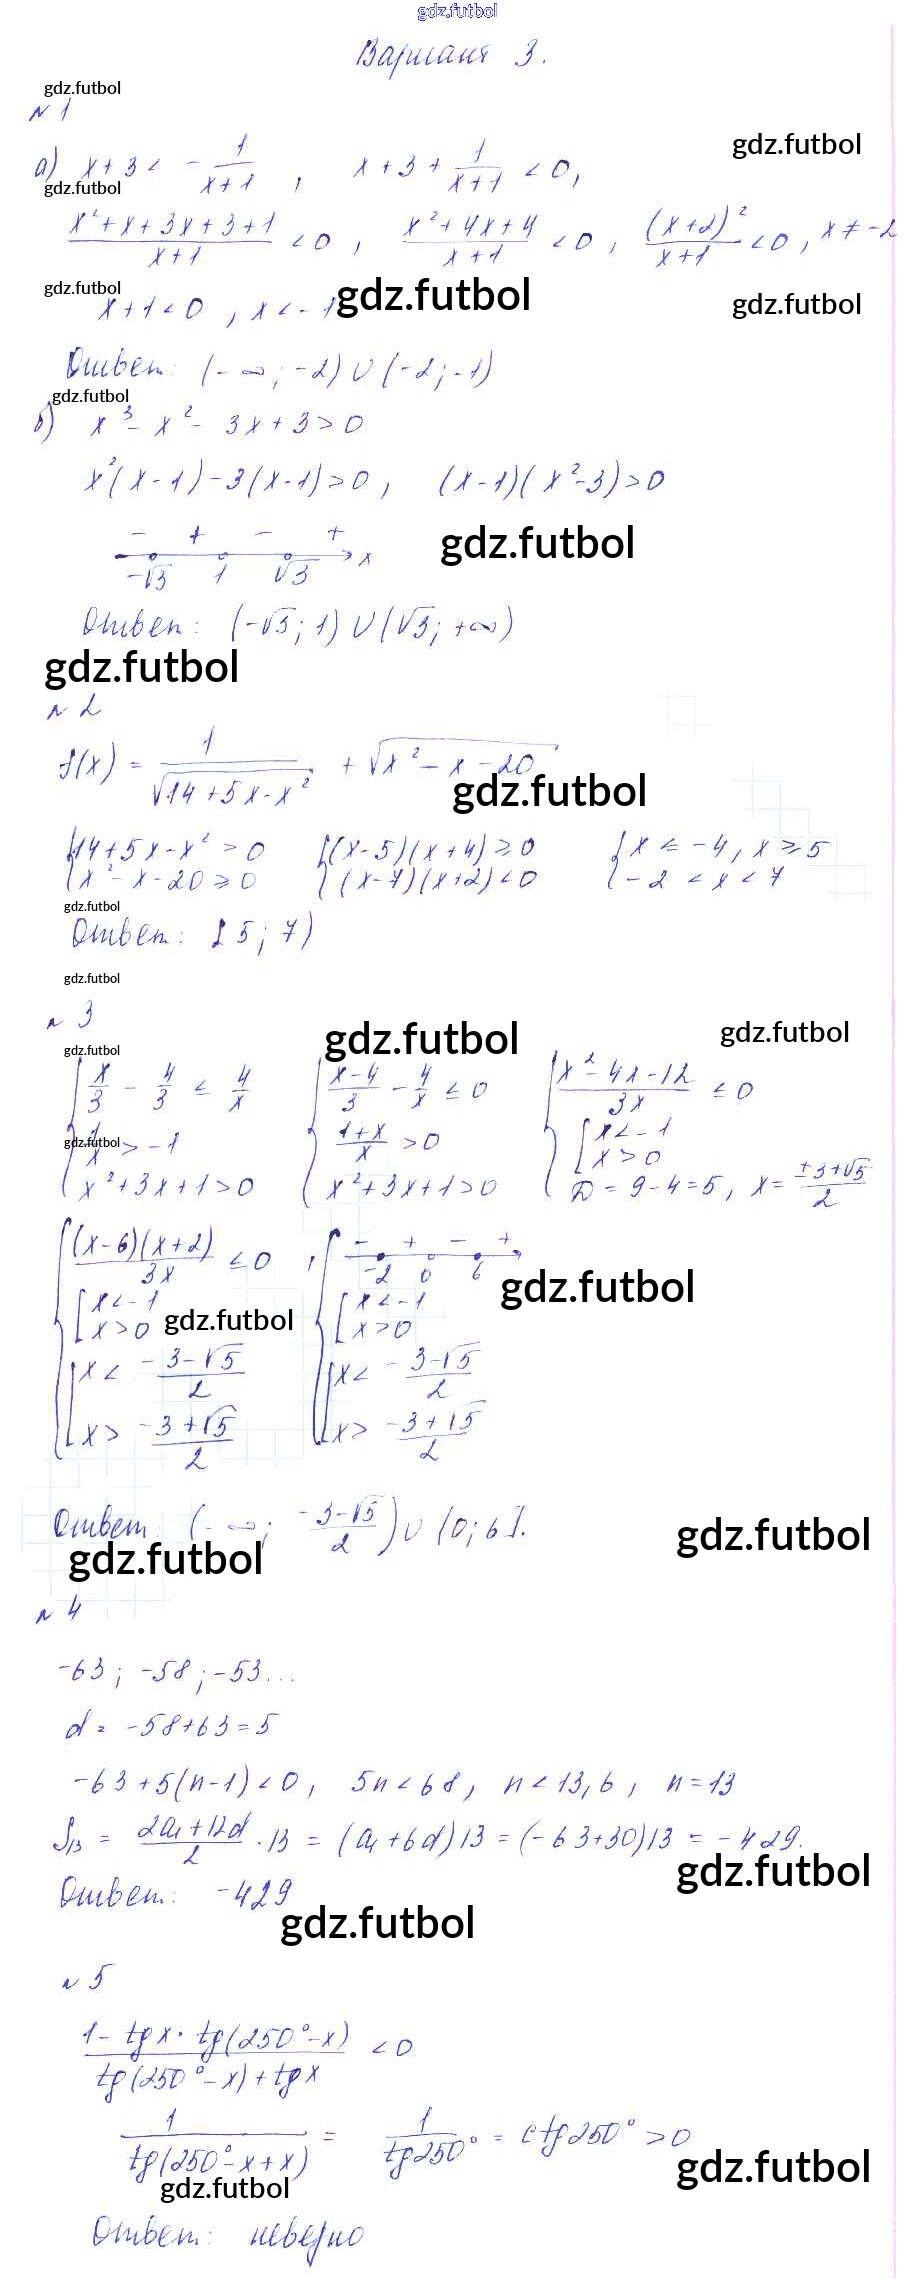 gdz.futbol
Вариант 3.
gdz.futbol
№ 1
gdz.futbol
а) x + 3 < - 1/(x+1) , x + 3 + 1/(x+1) < 0,
gdz.futbol
(x² + x + 3x + 3 + 1)/(x+1) < 0 , (x² + 4x + 4)/(x+1) < 0 , (x+2)²/(x+1) < 0 , x ≠ -2
gdz.futbol gdz.futbol gdz.futbol
x + 1 < 0 , x < -1
Ответ: (-∞; -2) ∪ (-2; -1)
gdz.futbol
б) x³ - x² - 3x + 3 > 0
x²(x-1) - 3(x-1) > 0 , (x-1)(x²-3) > 0
- + - +
gdz.futbol
-√3 1 √3 x
Ответ: (-√3; 1) ∪ (√3; +∞)
gdz.futbol
№ 2
f(x) = 1/√(14 + 5x - x²) + √(x² - x - 20)
gdz.futbol
{14 + 5x - x² > 0 {(x-5)(x+4) ≥ 0 {x ≤ -4, x ≥ 5
{x² - x - 20 ≥ 0 {(x-7)(x+2) < 0 {-2 < x < 7
gdz.futbol
Ответ: [5; 7)
gdz.futbol
№ 3
gdz.futbol gdz.futbol
gdz.futbol
{x/3 - 4/3 ≤ 4/x {(x-4)/3 - 4/x ≤ 0 {(x² - 4x - 12)/3x ≤ 0
gdz.futbol
{1/x > -1 {(1+x)/x > 0 {[x < -1
[x > 0
{x² + 3x + 1 > 0 {x² + 3x + 1 > 0 {D = 9 - 4 = 5, x = (±3+√5)/2
{(x-6)(x+2)/3x ≤ 0 , { - + - +
-2 0 6
gdz.futbol
[x < -1 [x < -1
[x > 0 [x > 0
gdz.futbol
[x < (-3-√5)/2 [x < (-3-√5)/2
[x > (-3+√5)/2 [x > (-3+√5)/2
Ответ: (-∞; (-3-√5)/2) ∪ (0; 6].
gdz.futbol
gdz.futbol
№ 4
-63; -58; -53...
d = -58+63 = 5
-63 + 5(n-1) < 0, 5n < 68, n < 13,6, n = 13
S₁₃ = (2a₁ + 12d)/2 · 13 = (a₁ + 6d)13 = (-63+30)13 = -429.
gdz.futbol
Ответ: -429
gdz.futbol
№ 5
(1 - tg x · tg(250° - x))/(tg(250° - x) + tg x) < 0
1/tg(250° - x + x) = 1/tg250° = ctg250° > 0
gdz.futbol
gdz.futbol
Ответ: неверно